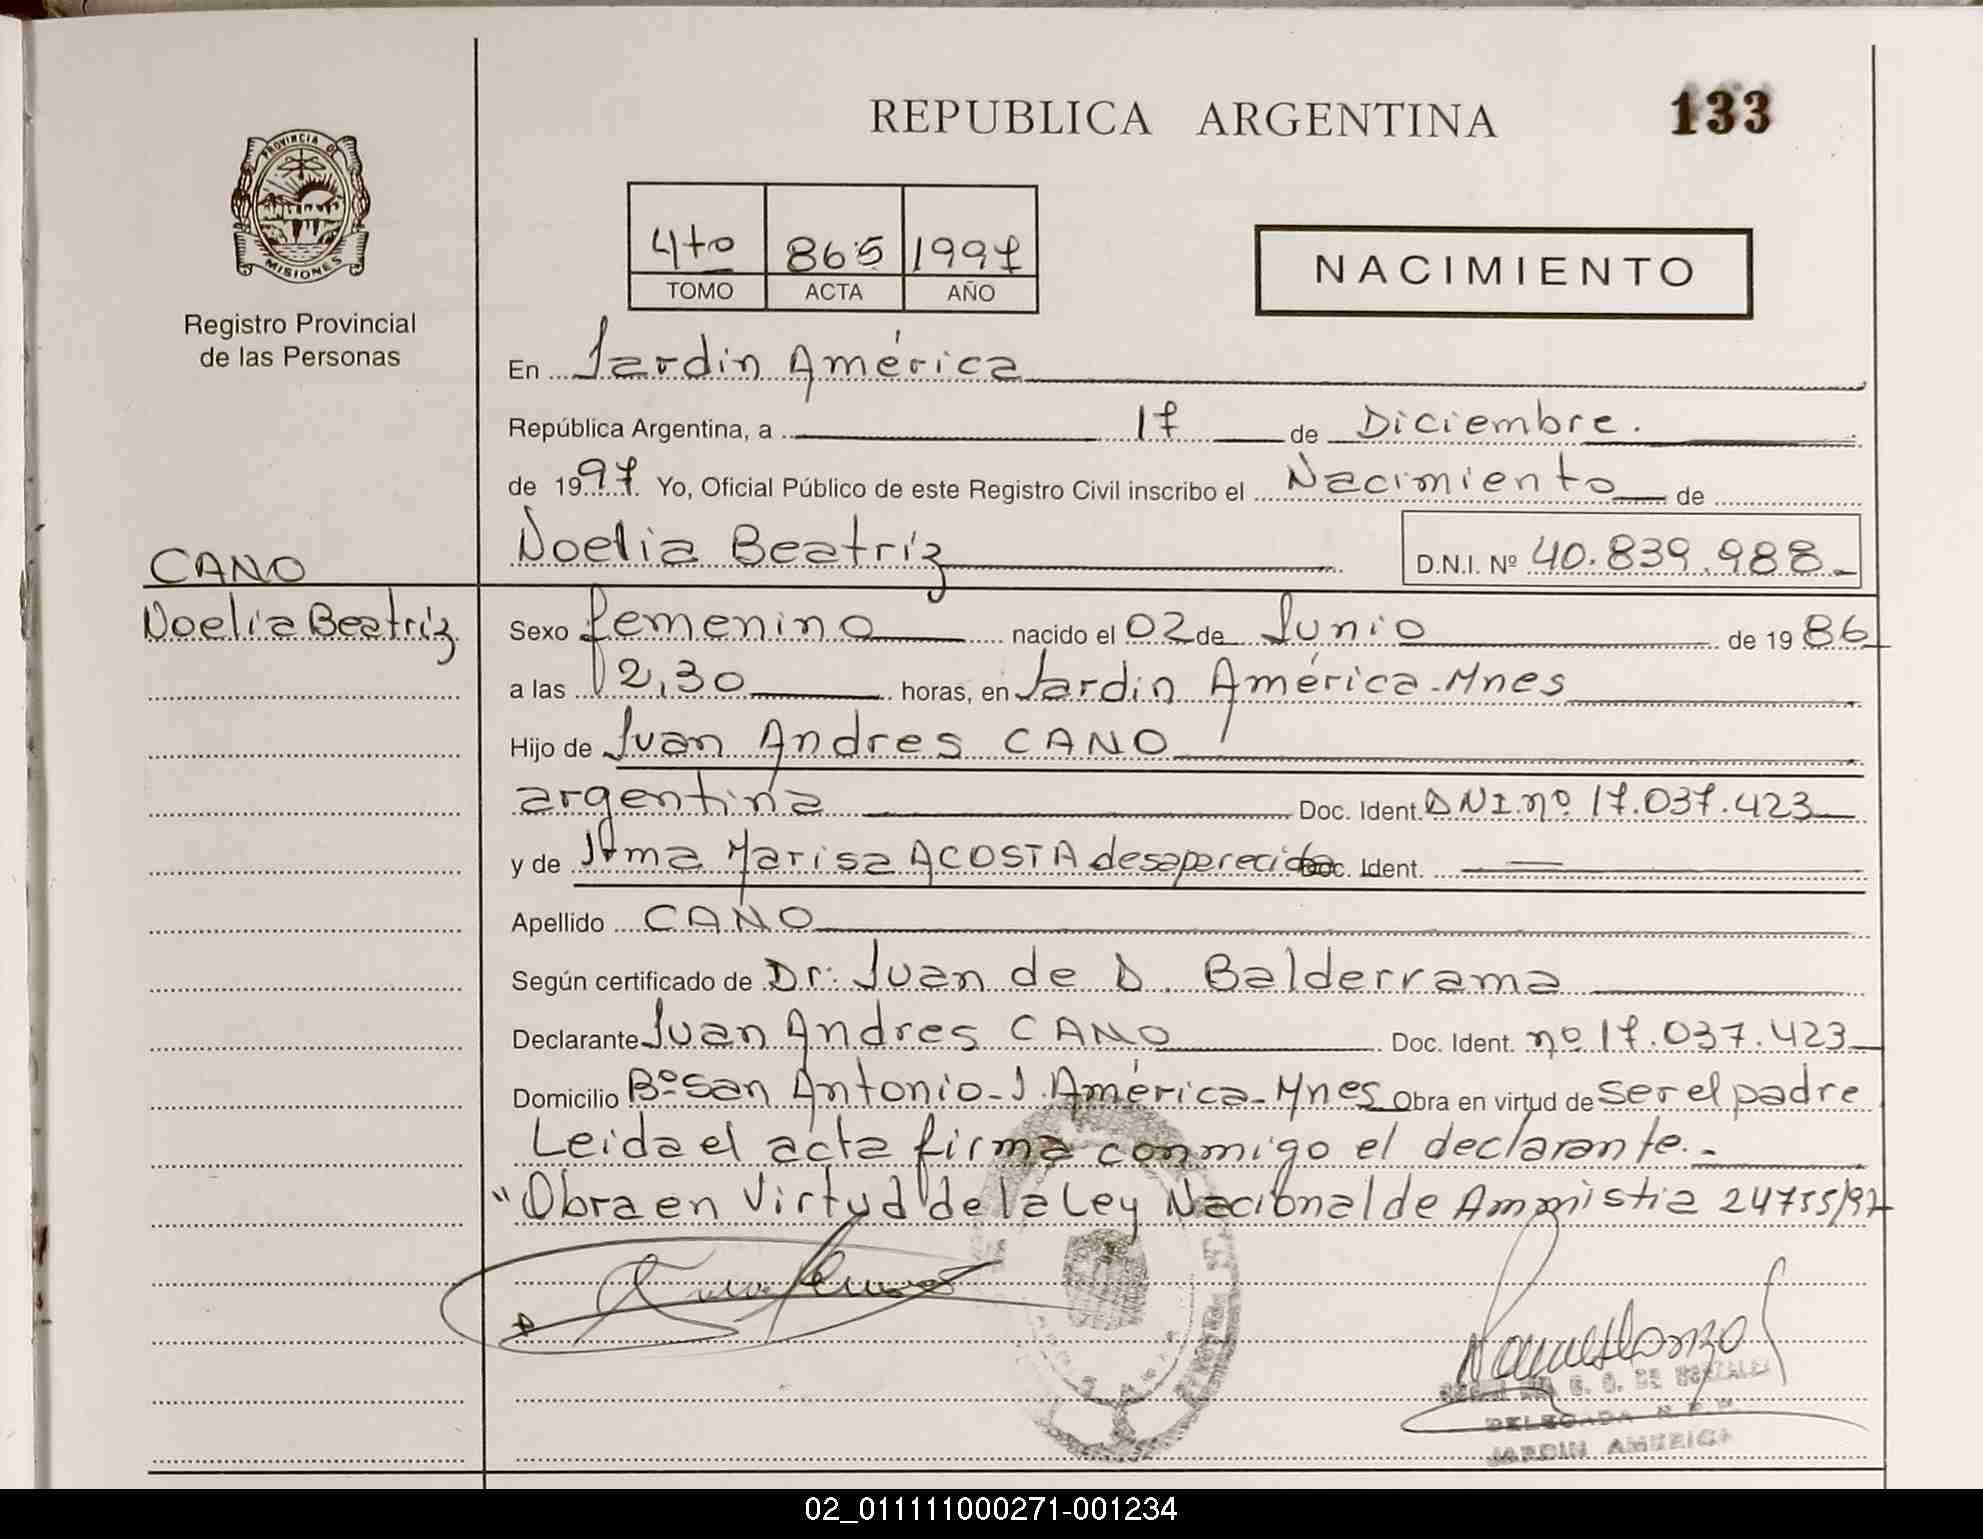 REPUBLICA ARGENTINA
133
PROVINCIA DE
MISIONES
Registro Provincial
de las Personas
4to 865 1997
TOMO ACTA AÑO
NACIMIENTO
En Jardin América
República Argentina, a 17 de Diciembre.
de 1997. Yo, Oficial Público de este Registro Civil inscribo el Nacimiento de
Noelia Beatríz D.N.I. Nº 40.839.988
CANO
Noelia Beatríz
Sexo femenino nacido el 02 de Junio de 1986
a las 12,30 horas, en Jardin América-Mnes
Hijo de Juan Andres CANO
argentina Doc. Ident. DNI.nº 17.037.423
y de Irma Marisa ACOSTA desaparecida Doc. Ident.
Apellido CANO
Según certificado de Dr: Juan de D. Balderrama
Declarante Juan Andres CANO Doc. Ident. nº 17.037.423
Domicilio Bº San Antonio-J. América-Mnes Obra en virtud de ser el padre
Leida el acta firma conmigo el declarante.-
"Obra en Virtud de la Ley Nacional de Amnistia 24755/97
DE GONZALEZ
DELEGADA R.P.P.
JARDIN AMERICA
02_011111000271-001234